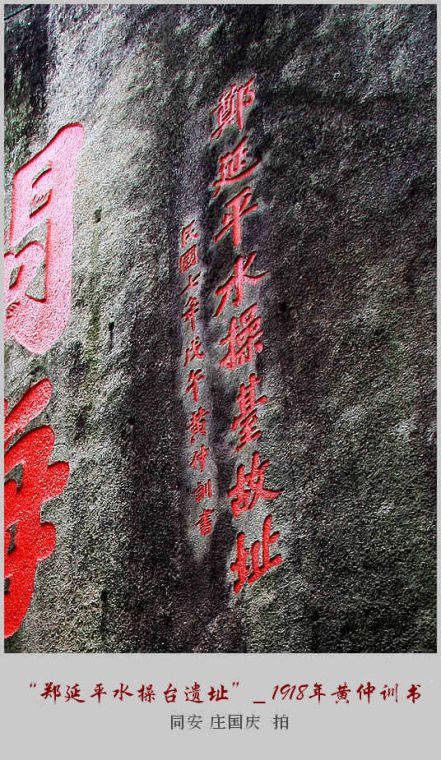 鄭延平水操臺故址
民國七年戊午黃仲訓書
“郑延平水操台遗址”_1918年黄仲训书
同安 庄国庆 拍